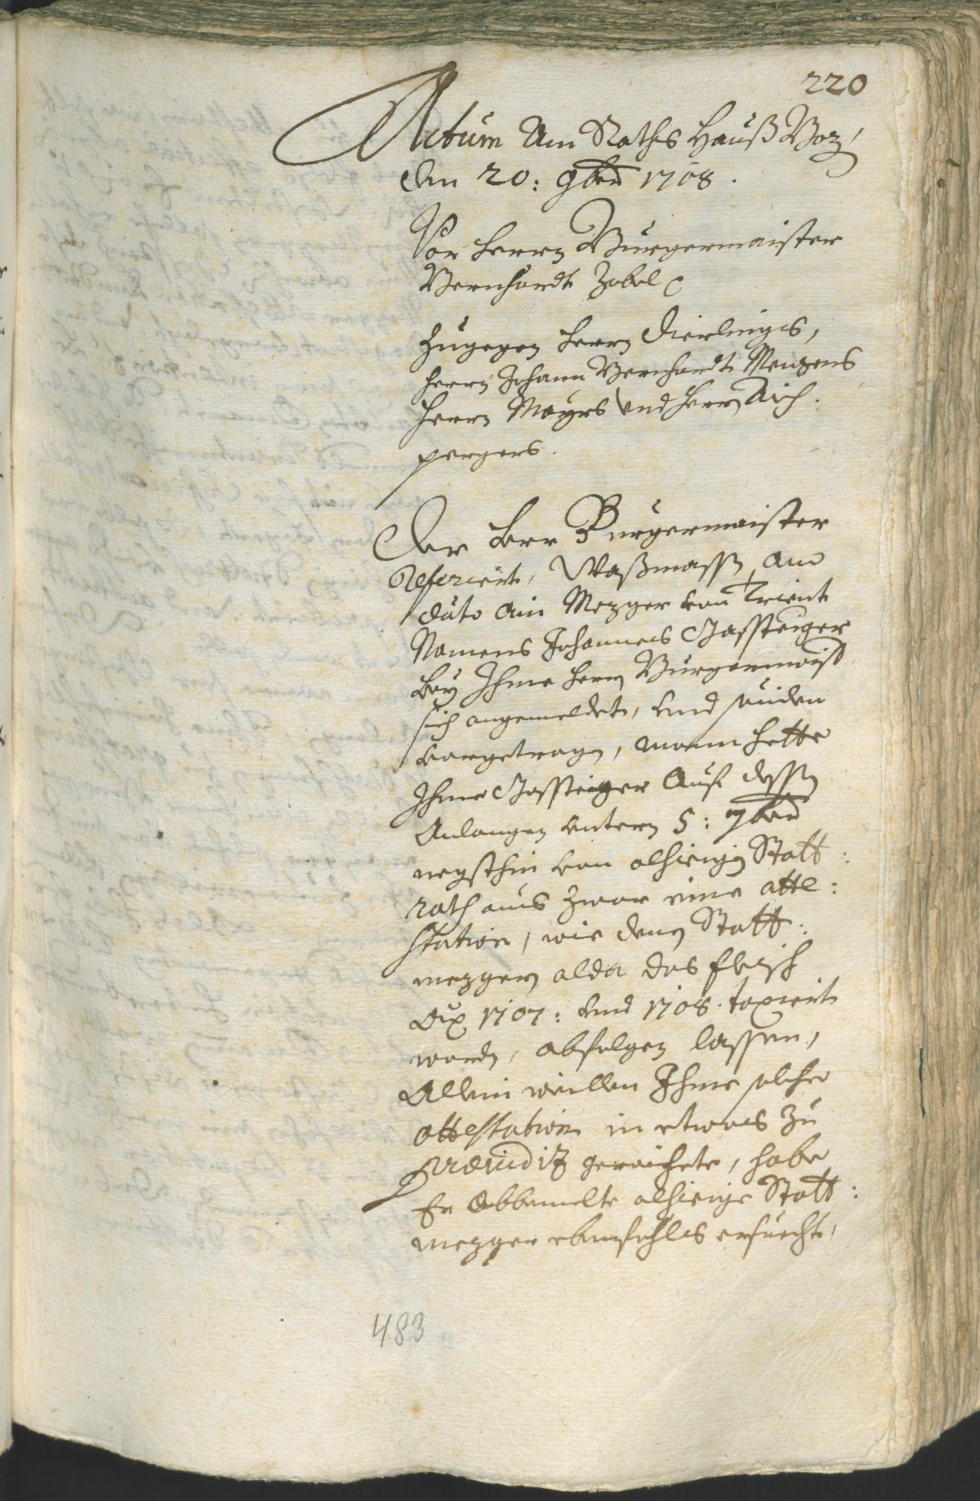 220
Actum Am Raths Hauß Boz
den 20: 9ber 1708.
Vor Herrn Burgermaister
Bernhardt Zobel
Zugegen Herrn Dierlings,
Herrn Johann Bernhardt Menzens
Herrn Mayrs und Herrn Aich:
pergers.
Der Herr Burgermaister
Referiert, Waßmassen am
dato Ain Mezger von Trient
Namens Johannes Gassteiger
bey Ihme Herrn Burgermaister
sich angemeldet, und
vorgetragen, wann hette
Ihme Gassteiger Auf dessen
Anlangen untern 5: 7ber
negsthin von alhieigen Statt:
rath aus zwar eine atte:
station, wie denen Statt:
mezgern alda das fleisch
1707: und 1708. taxiert
worden, abfolgen lassen,
Allein weillen Ihme solche
attestation in etwas zu
Præiudiz geraichete, habe
Er Obbemelte alhieige Statt:
mezger ebenfahls ersuecht,
483